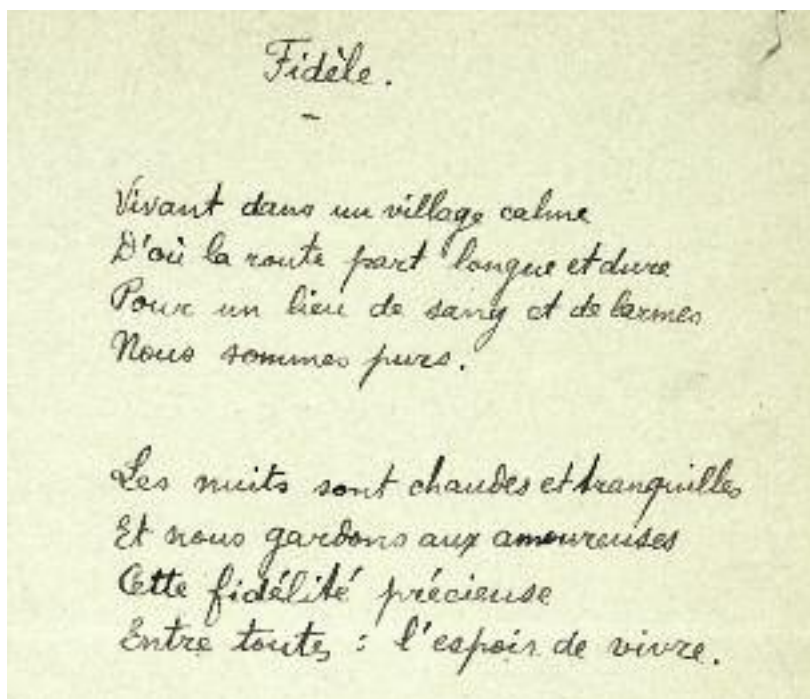 Fidèle.
Vivant dans un village calme
D'où la route part longue et dure
Pour un lieu de sang et de larmes
Nous sommes purs.
Les nuits sont chaudes et tranquilles
Et nous gardons aux amoureuses
Cette fidélité précieuse
Entre toutes : l'espoir de vivre.